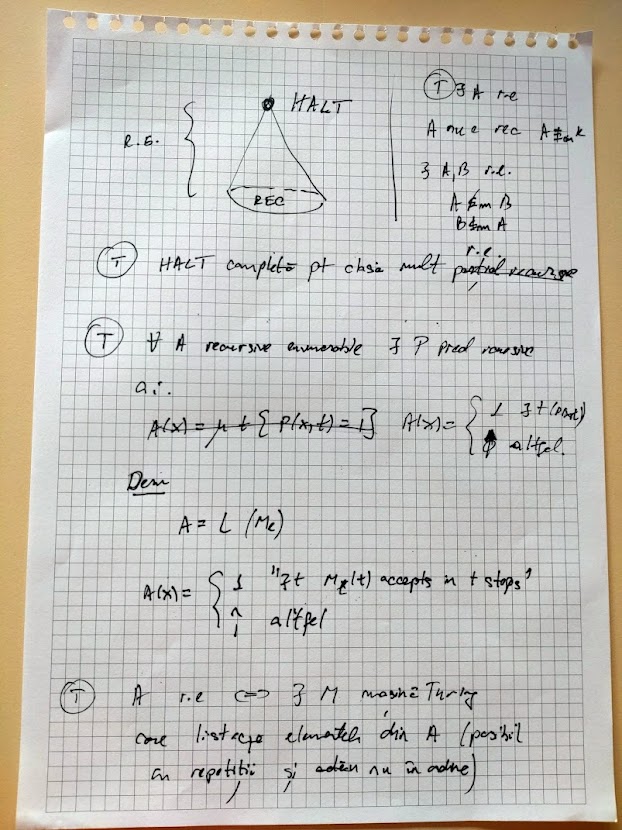 HALT
R.E.
REC
T ∃ A r.e
A nu e rec
∃ A, B r.e.
A ≰m B
B ≰m A
r.e.
T HALT completă pt clasa mult parțial recursive
T ∀ A recursive enumerable ∃ P pred recursive
a.i.
A(x) = μ t { P(x,t) = 1 } A(x) = { 1 ∃ t
altfel.
Dem
A = L (Me)
A(x) = { 1 "∃ t accepts in t stops"
altfel
T A r.e <=> ∃ M mașină Turing
care elementele din A (posibil
cu repetiții și nu în ordine)